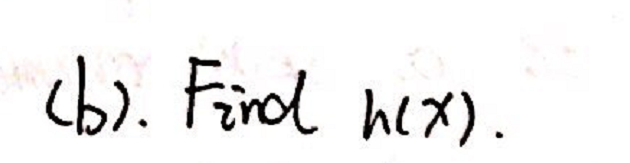 (b). Find h(x).